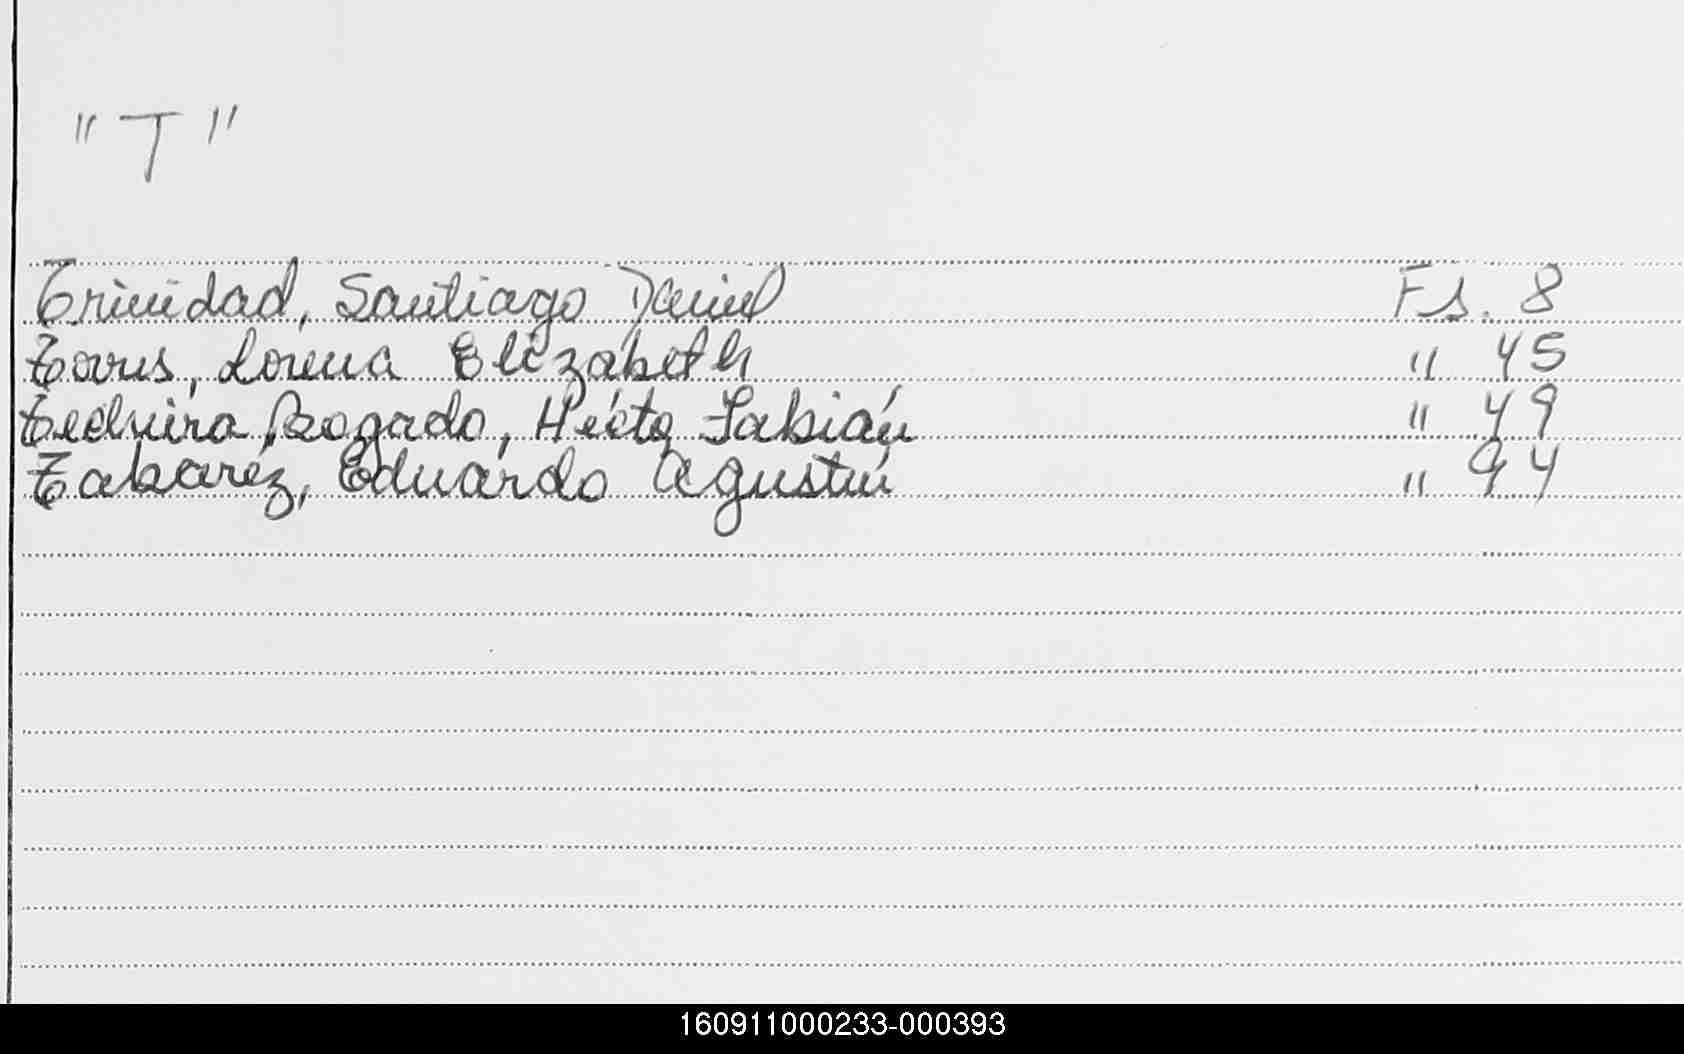 "T"
Trinidad, Santiago Daniel Fs. 8
Torres, Lorena Elizabeth " 45
Rogado, Héctor Fabián " 49
Tabaréz, Eduardo Agustín " 94
160911000233-000393